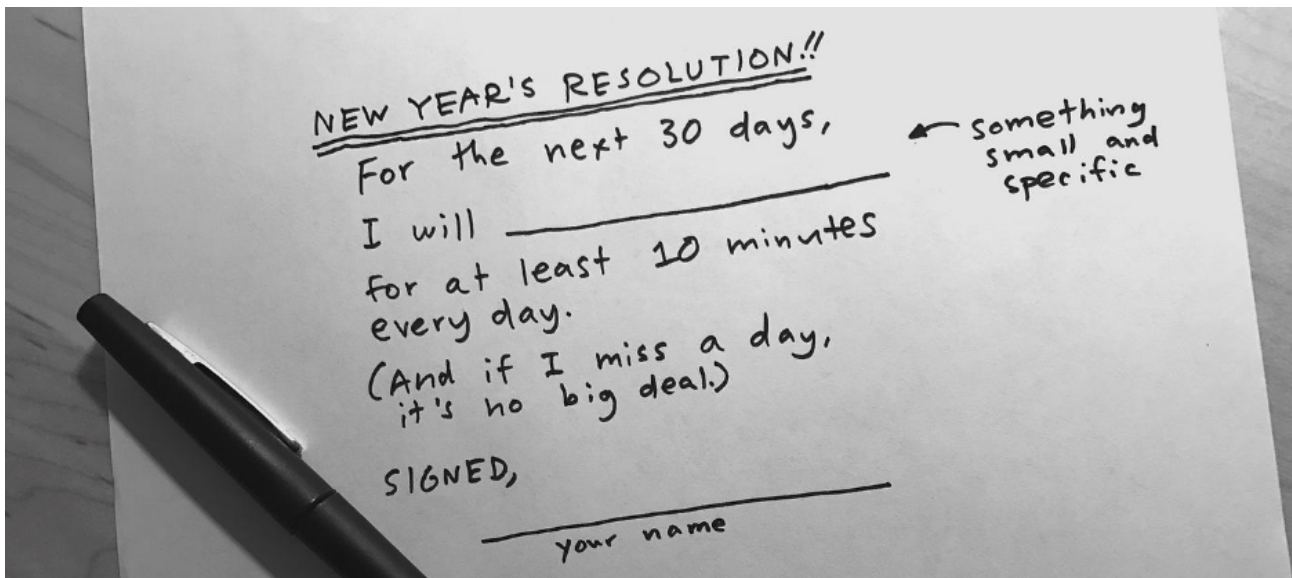 NEW YEAR'S RESOLUTION!!
For the next 30 days,
I will
something
small and
specific
for at least 10 minutes
every day.
(And if I miss a day,
it's no big deal.)
SIGNED,
your name